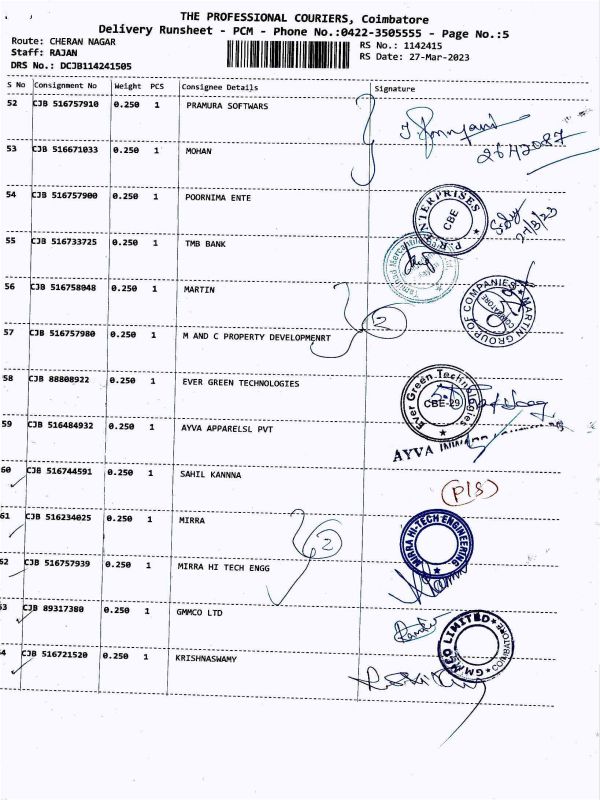 THE PROFESSIONAL COURIERS, Coimbatore
Delivery Runsheet - PCM - Phone No.:0422-3505555 - Page No.:5
Route: CHERAN NAGAR
RS No.: 1142415
Staff: RAJAN
RS Date: 27-Mar-2023
DRS No.: DCJB114241505
S No Consignment No Weight PCS Consignee Details Signature
52 CJB 516757910 0.250 1 PRAMURA SOFTWARS
2642087
53 CJB 516671033 0.250 1 MOHAN
54 CJB 516757900 0.250 1 POORNIMA ENTE
P.R. ENTERPRISES CBE
27/3/23
55 CJB 516733725 0.250 1 TMB BANK
Tamilnad Mercantile
56 CJB 516758048 0.250 1 MARTIN
2
MARTIN GROUP OF COMPANIES COIMBATORE
57 CJB 516757980 0.250 1 M AND C PROPERTY DEVELOPMENRT
58 CJB 88808922 0.250 1 EVER GREEN TECHNOLOGIES
Ever Green Technologies CBE-29
59 CJB 516484932 0.250 1 AYVA APPARELSL PVT
AYVA
60 CJB 516744591 0.250 1 SAHIL KANNNA
(P/S)
61 CJB 516234025 0.250 1 MIRRA
2
MIRRA HI-TECH ENGINEERING
62 CJB 516757939 0.250 1 MIRRA HI TECH ENGG
53 CJB 89317380 0.250 1 GMMCO LTD
GMMCO LIMITED COIMBATORE
4 CJB 516721520 0.250 1 KRISHNASWAMY